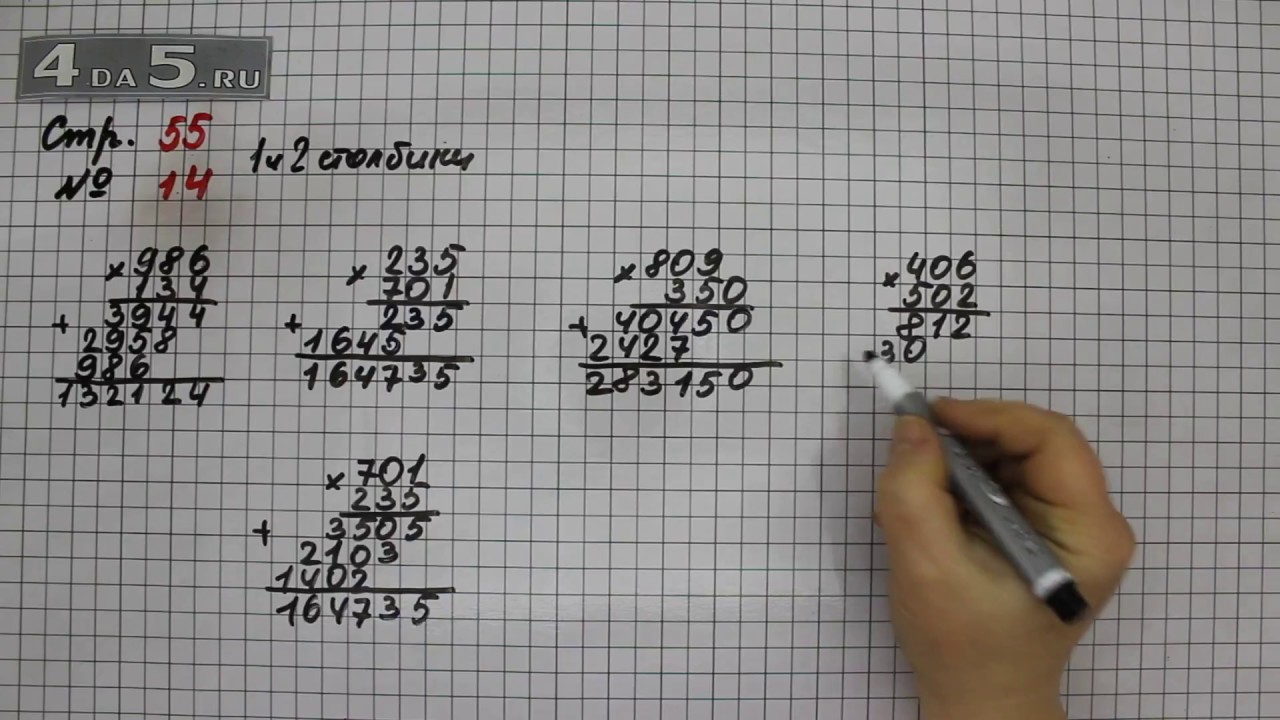 4 DA 5.RU
Стр. 55
№ 14
1 и 2 столбики
× 986
134
+ 3944
2958
986
132124
× 235
701
+ 235
1645
164735
× 809
350
+ 40450
2427
283150
× 406
502
812
30
× 701
235
+ 3505
2103
1402
164735